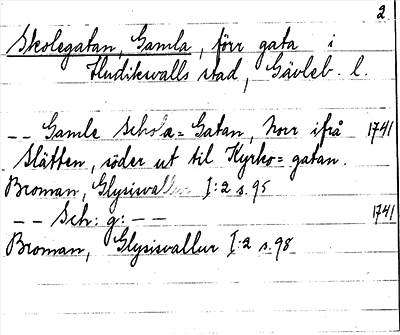 2.
Skolegatan, Gamla, förr gata i
Hudikswalls stad, Gävleb. l.
-- Gamle Schola=Gatan, Norr ifrå 1741
Slätten, söder ut til Kyrko=gatan.
Broman, Glysisvallur I:2 s. 95
-- Sch: g: -- 1741
Broman, Glysisvallur I:2 s. 98